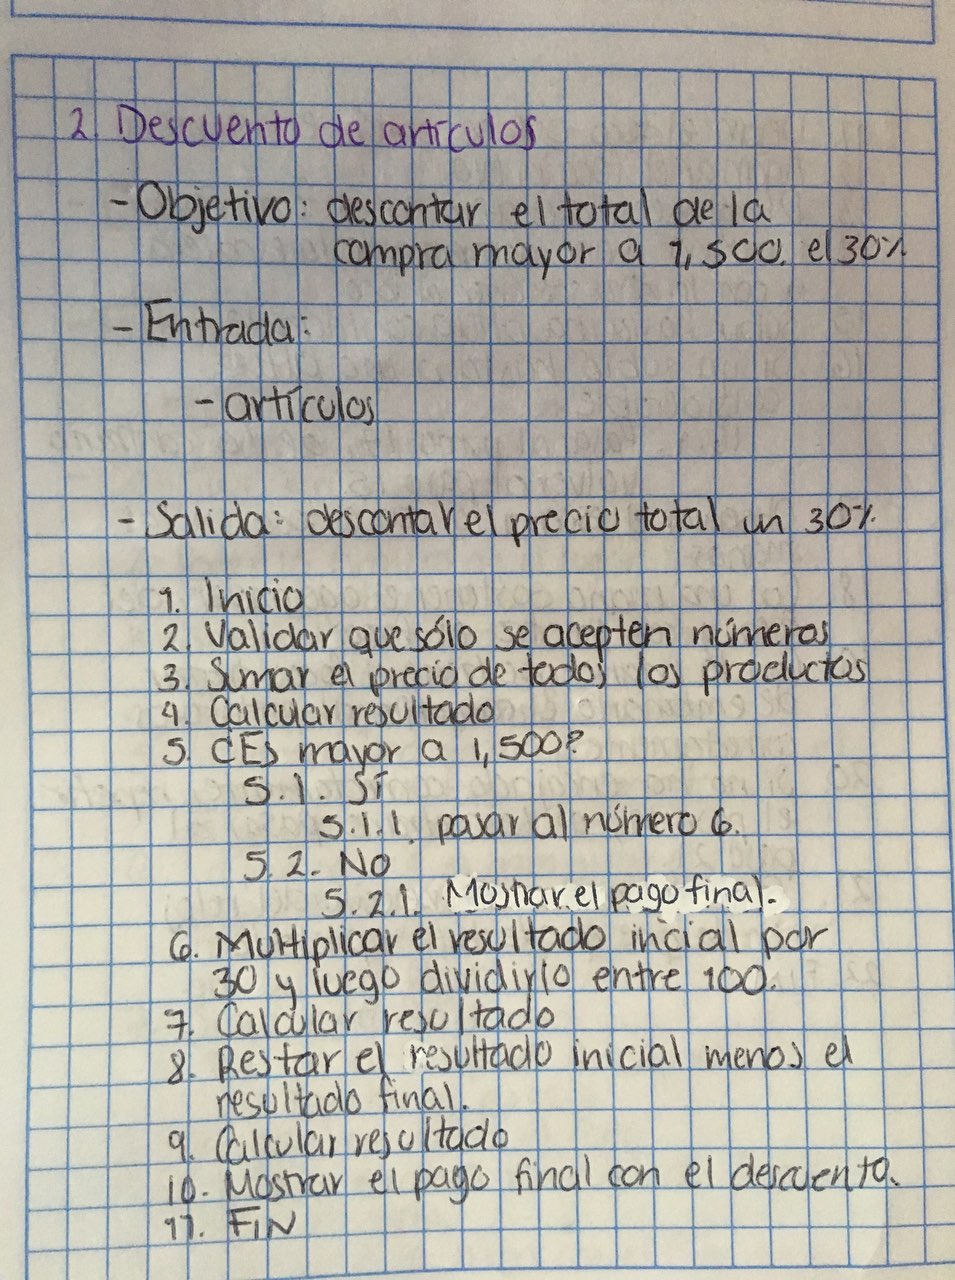 2 Descuento de artículos
- Objetivo: descontar el total de la
compra mayor a 1,500. el 30%
- Entrada:
- artículos
- Salida: descontar el precio total un 30%.
1. Inicio
2. Validar que sólo se acepten números
3. Sumar el precio de todos los productos
4. Calcular resultado
5. ¿Es mayor a 1,500?
5.1. Sí
5.1.1. pasar al número 6.
5.2. No
5.2.1. Mostrar el pago final.
6. Multiplicar el resultado incial por
30 y luego dividirlo entre 100.
7. Calcular resultado
8. Restar el resultado inicial menos el
resultado final.
9. Calcular resultado
10. Mostrar el pago final con el descuento.
11. FiN